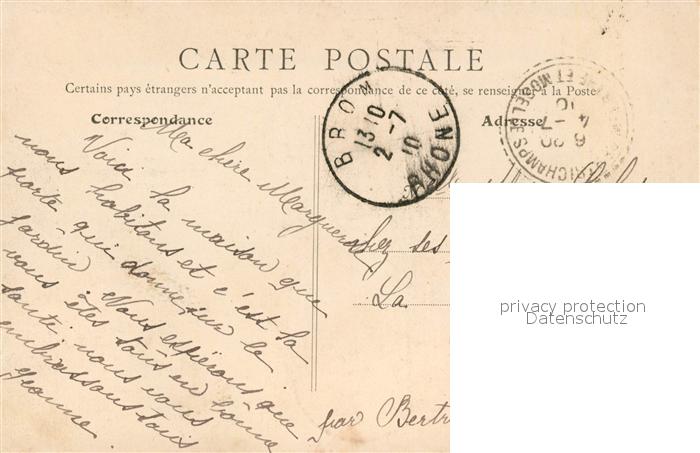 CARTE POSTALE
Certains pays étrangers n'acceptant pas la correspondance de ce côté, se renseigner à la Poste
Correspondance
Adresse
BRON
13 10
2 -7
10
RHONE
6 20
4 -7
10
ET MOSELLE
Ma chère Marguerite
Voici la maison que
nous habitons et c'est la
porte qui donne sur le
jardin Nous espérons que
vous êtes tous en bonne
santé, nous vous
embrassons tous
Jeanne.
chez ses
La
par Bertr
privacy protection
Datenschutz